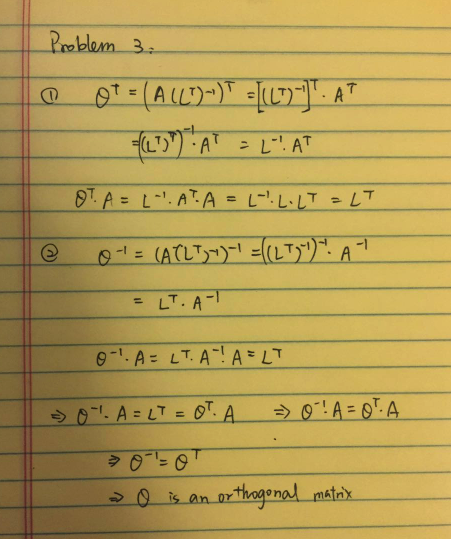 Problem 3:
① Q^T = (A(L^T)^-1)^T = [(L^T)^-1]^T · A^T
= ((L^T)^T)^-1 · A^T = L^-1 · A^T
Q^T · A = L^-1 · A^T · A = L^-1 · L · L^T = L^T
② Q^-1 = (A(L^T)^-1)^-1 = ((L^T)^-1)^-1 · A^-1
= L^T · A^-1
Q^-1 · A = L^T · A^-1 · A = L^T
⇒ Q^-1 · A = L^T = Q^T · A ⇒ Q^-1 · A = Q^T · A
⇒ Q^-1 = Q^T
⇒ Q is an orthogonal matrix